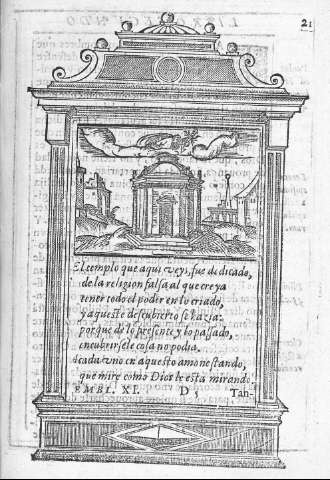 21
El templo que aqui veys, fue dedicado,
de la religion falsa al que creya
tener todo el poder en lo criado,
y aqueste descubierto se hazia:
porque de lo presente y lo passado,
encubrirsele cosa no podia.
a cada vno en aquesto amonestando,
que mire como Dios le esta mirando.
EMBL. XI. D 5 Tan-